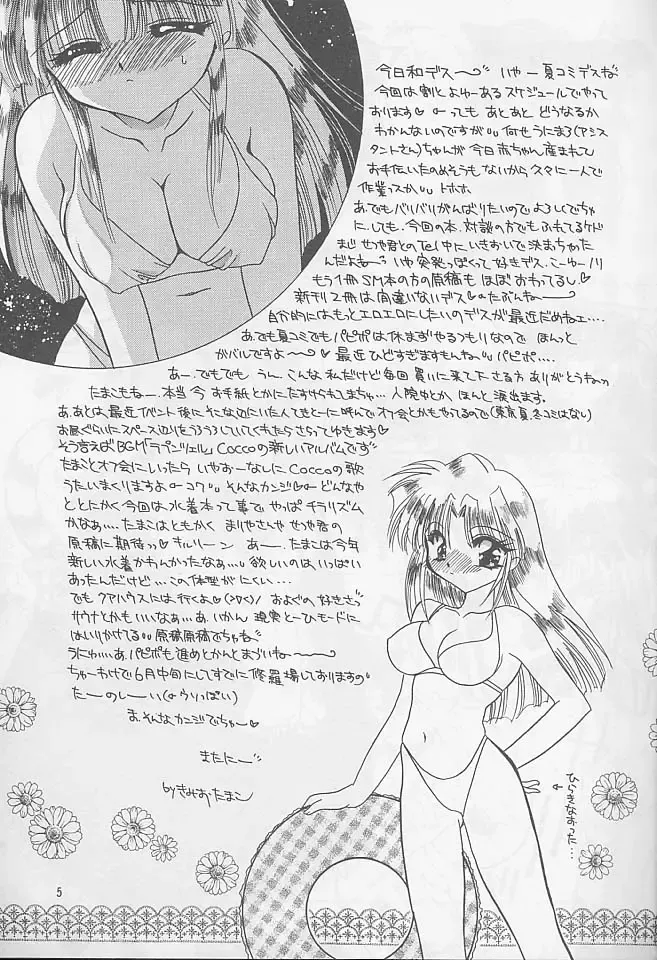 今日和デス〜 いやー夏コミデスね
今回は割とよゆーあるスケジュールでやって
おります♡ っても あとあと どうなるか
わかんないのですが 何せうにまろ(アシス
タントさん)ちゃんが 今日赤ちゃん産まれて
お手伝いたのめそうもないから 久々に一人で
作業っスか トホホ
あ、でもバリバリがんばりたいのでよろしくでちゃ
にしても、今回の本、対談の方でもふれてるケド
まじ せつや君とのTel中にいきおいで決まちゃった
んだよぉー いや 突発っぽくって好きデス、こーゆーノリ
もう1冊 SM本の方の原稿も ほぼおわってるし
新刊2冊は間違いないデス♡ たぶんねー
自分的にはもっとエロエロにしたいのデスが最近だめねェ....
あ、でも夏コミでもパピポは休まずやるつもりなので ほんっと
ガバルですよ〜♡ 最近ひどすぎますもんね パピポ....
あー、でもでも うー、こんな私だけど毎回買いに来て下さる方 ありがとうねっ
たまこもねー、本当 今 お手紙とかにたすけられこまちゅ…
あ、あとは、最近イベント後にそこな辺にいた人てきとーに呼んでオフ会とかもやってるので(東京夏、冬コミはなし)
お暇ぐらいたスペース辺りをうろうろしていてくれたらさらってゆきます♡
そう言えばBGM「ラプンツェル」Coccoの新しいアルバムです
たまことオフ会にいったら いやおーなしにCoccoの歌
うたいまくりますよ コワ そんなカンジ♡ どんなや
ととにかく今回は水着本って事で やっぱチラリズム
かなぁ… たまこはともかく まりやさんや せつや君の
原稿に期待っ♡ キルリーン あー、たまこは今年
新しい水着かわんかったなぁ… 欲しいのは、いっぱい
あったんだけど… この体型がにくい…
でも クアハウスには行くよ♡ およぐの好きさっ
サウナとかもいいなぁ… あ、いかん 現実とーひモードに
はいりかけてる 原稿原稿でちゃね
うにゅ… あ、パピポも進めとかんとまづいねー
ちゅーわけで6月中旬にしてすでに修羅場しておりますの
たーのしーい(うりっぽい)
ま、そんなカンジでちゃー♡
またにー
byきみおたまこ
ひらきなおった…
5